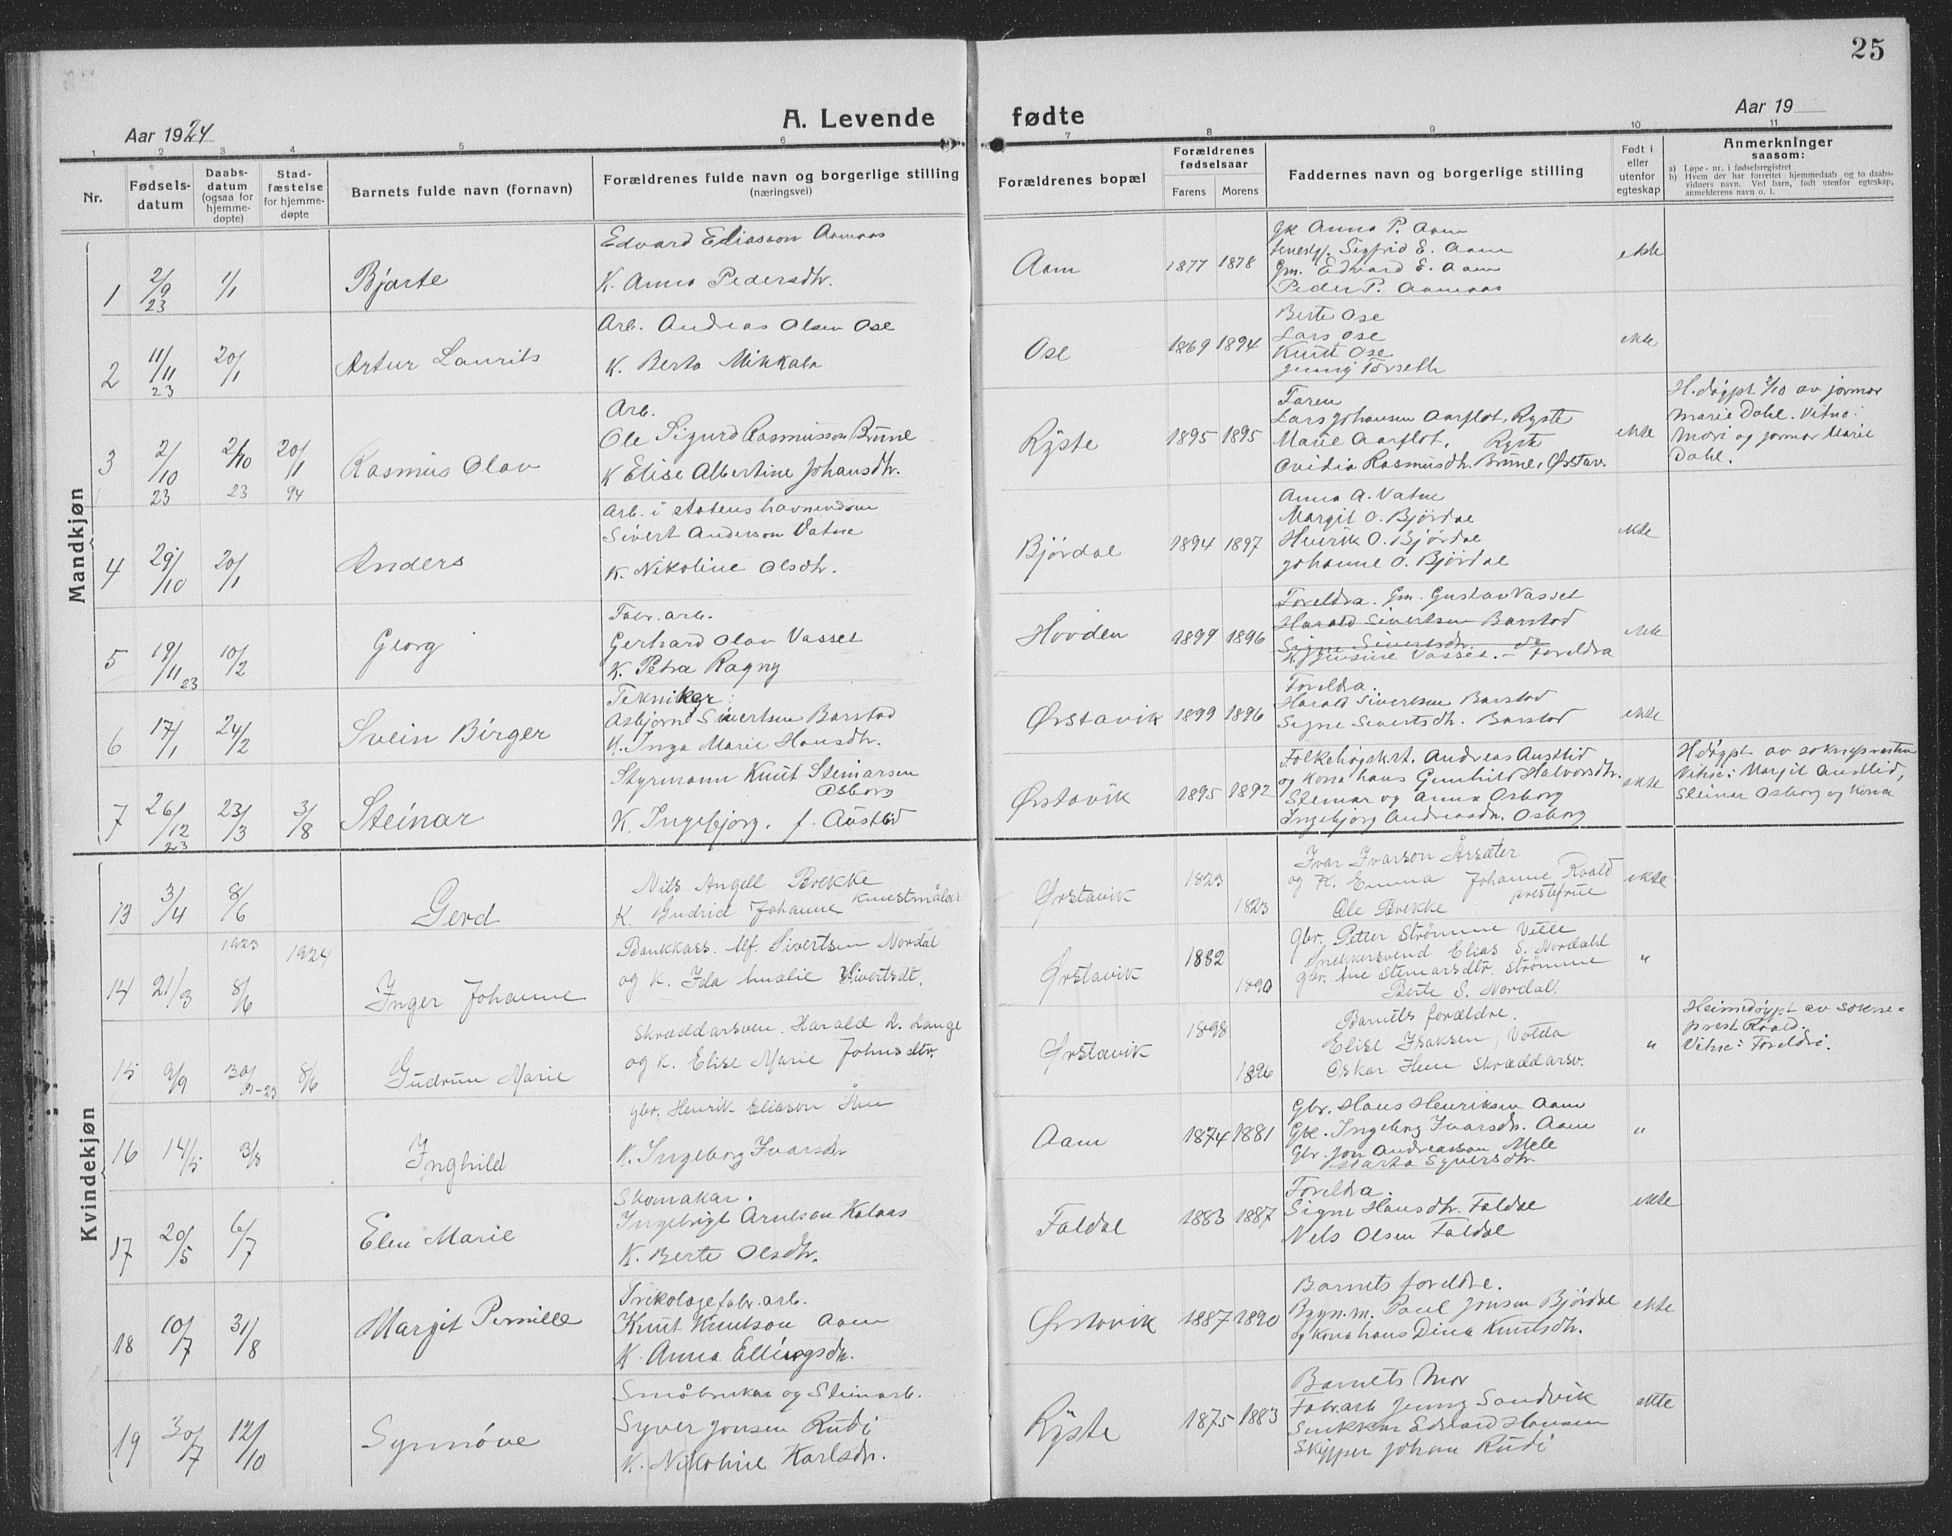 25
Aar 1924
A. Levende fødte
Aar 19
1 2 3 4 5 6 7 8 9 10 11
Nr.
Fødselsdatum
Daabsdatum (ogsaa for hjemmedøpte)
Stadfæstelse for hjemmedøpte
Barnets fulde navn (fornavn)
Forældrenes fulde navn og borgerlige stilling
(næringsvei)
Forældrenes bopæl
Forældrenes fødselsaar
Farens Morens
Faddernes navn og borgerlige stilling
Født i eller utenfor egteskap
Anmerkninger
saasom:
a) Løpe-nr. i fødselsregistret
b) Hvem der har forrettet hjemmedaab og to daabsvidners navn. Ved barn, født utenfor egteskap, anmelderens navn o. l.
Mandkjøn
1 2/9 23 1/1 Bjarte
Edvard Eliasson Aamaas
K. Anna Pedersdtr.
Aam 1877 1878
Gk Anna P. Aam
Sigfrid E. Aam
Gm. Edvard E. Aam
Peder P. Aamaas
ekte
2 11/11 23 20/1 Artur Laurits
Arb. Andreas Olsen Ose
K. Berta Mikkala
Ose 1869 1894
Berte Ose
Lars Ose
Knut Ose
Jenny Torseth
ekte
3 2/10 23 2/10 23 20/1 94 Rasmus Olav
Arb.
Ole Sigurd Rasmusson Brune
K Elise Albertine Johansdtr.
Ryste 1895 1895
Faren
Lars Johansen Aarflot, Ryste
Marie Aarflot, Ryste
Ovidia Rasmusdtr. Brune, Ørstav.
ekte
H.døypt 2/10 av jormor
Marie Dahl. Vitne:
Mori og jormor Marie
Dahl.
4 29/10 20/1 Anders
Arb. i statens havnevesen
Sivert Anderson Vatne
K. Nikoline Olsdtr.
Bjørdal 1894 1897
Anna A. Vatne
Margit O. Bjørdal
Henrik O. Bjørdal
Johanne O. Bjørdal
ekte
5 19/11 23 10/2 Georg
Fabr. arb.
Gerhard Olav Vasset
K. Petra Ragny
Hovden 1899 1896
Foreldra. Gm. Gustav Vasset
Harald Sivertsen Barstad
Signe Sivertsdtr. do
Vasset. – Foreldra
ekte
6 17/1 24/2 Svein Birger
Tekniker
Asbjørn Sivertsen Barstad
K. Inga Marie Hansdtr.
Ørstavik 1899 1896
Foreldra.
Harald Sivertsen Barstad
Signe Sivertsdtr. Barstad
ekte
7 26/12 23 23/3 3/8 Steinar
Styrmann Knut Steinarsen
Osborg
K. Ingebjørg. f. Austlid
Ørstavik 1895 1892
Folkehøgsk.st. Andreas Austlid
og kona hans Gunhild Halvorsdtr.
Steinar og Anna Osborg
Ingebjørg Andreasdtr. Osborg
ekte
H.døypt av soknepresten
Vitne: Margit Austlid,
Steinar Osborg og kona
Kvindekjøn
13 3/4 8/6 Gerd
Nils Angell Brekke
kunstmåler
K Gudrid Johanne
Ørstavik 1823 1823
Ivar Ivarson Åsæter
og K. Emma Johanne Roald
prestefrue
Ole Brekke
ekte
14 21/3 1923 8/6 1924 Inger Johanne
Bankkass. Alf. Sivertsen Nordal
og K. Ida Amalie Sivertsdt.
Ørstavik 1882 1890
gbr. Petter Strømme Velle
snekkersvend Elias S. Nordahl
gbr. Ane Steinarsdtr. Strømme
Berte S. Nordal.
"
15 9/9 30/9-23 8/6 Gudrun Marie
Skræddarsven. Harald A. Lange
og K. Elise Marie Johnsdtr.
Ørstavik 1898 1896
Barnets forældre.
Elise Isaksen, Volda
Oskar Hem skræddarsv.
"
Heimedøypt av sokne-
prest Roald.
Vitne: Foreldri.
16 14/5 3/8 Inghild
gbr. Henrik Eliason Åm
K. Ingeborg Ivarsdtr
Aam 1874 1881
Gbr. Hans Henriksen Aam
Gk. Ingeborg Ivarsdtr. Aam
Gbr. Jon Andreasson Mele
Marta Syversdtr.
"
17 20/5 6/7 Elen Marie
Skomakar.
Ingebrigt Arneson Kolaas
K. Berte Olsdtr.
Foldal 1883 1887
Foreldra.
Signe Hansdtr. Foldal
Nels Olsen Foldal
ekte
18 10/7 31/8 Margit Pernille
Trikotagefabr. arb.
Knut Knutson Aam
K. Anna Ellingsdtr.
Ørstavik 1887 1890
Barnets foreldre.
Bygn.m. Paul Jonsen Bjørdal
og kona hans Dina Knutsdtr.
ekte
19 30/7 12/10 Synnøve
Småbrukar og Steinarb.
Syver Jonsen Rudi
K. Nikoline Karlsdtr.
Ryste 1875 1883
Barnets Mor
Fabr.arb Jenny Sandvik
Snikkar Edvard Hansen
Skipper Johan Rudi
ekte